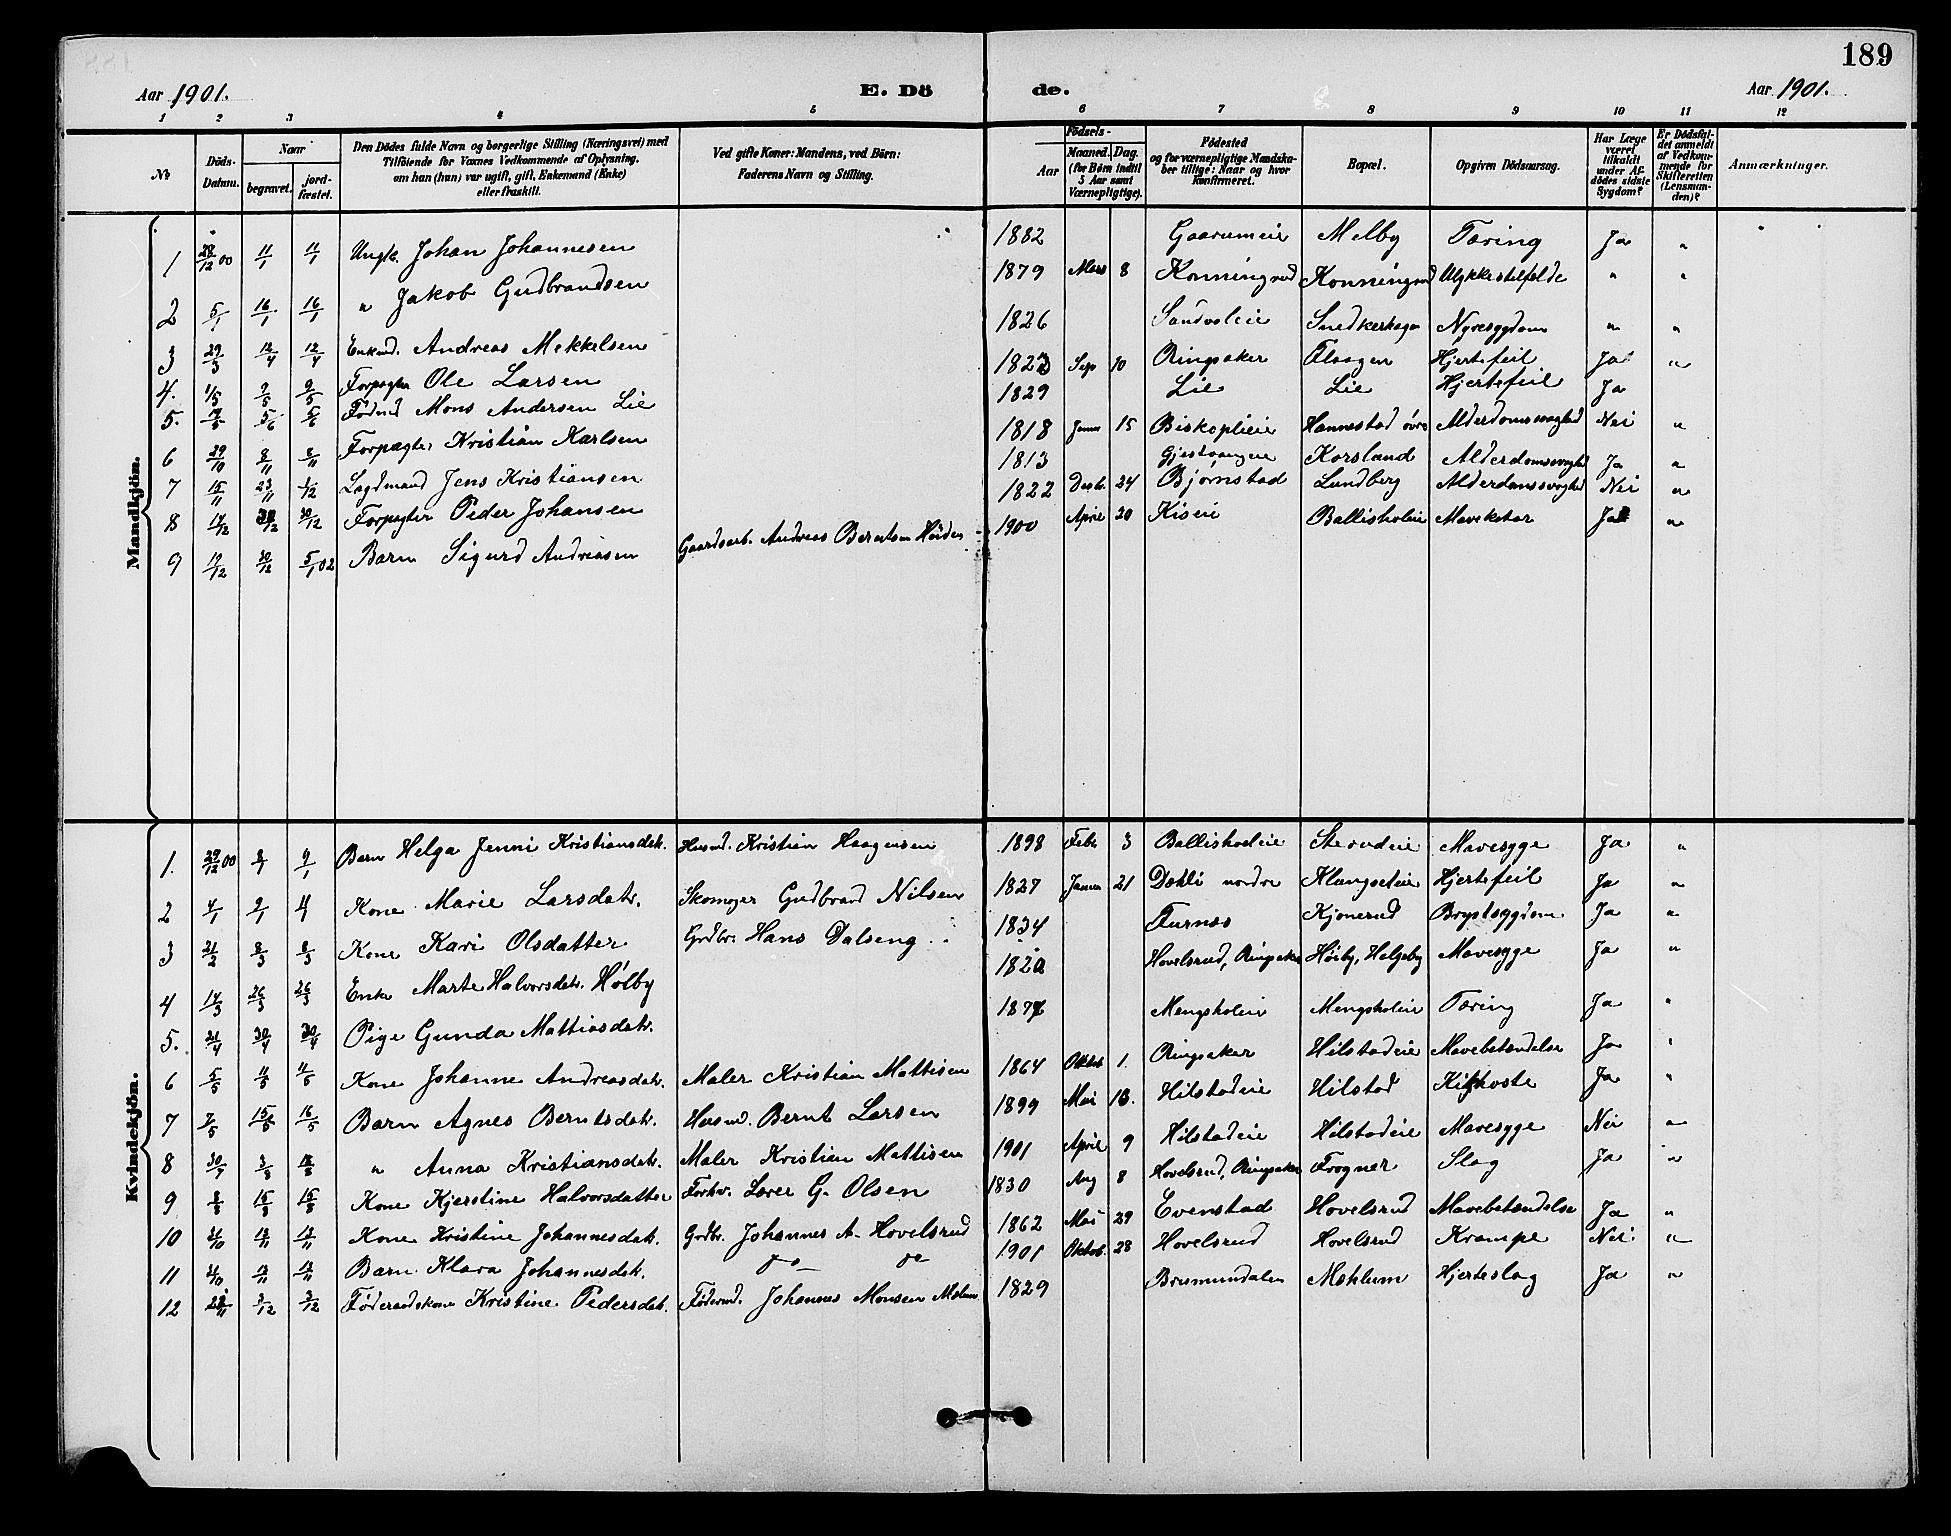 189
Aar 1901. E. Dö de. Aar 1901.
1 2 3 4 5 6 7 8 9 10 11 12
No
Döds-Datum.
Naar
begravet.
jord-fæstet.
Den Dödes fulde Navn og borgerlige Stilling (Næringsvei) med
Tilföiende for Voxnes Vedkommende af Oplysning,
om han (hun) var ugift, gift, Enkemand (Enke)
eller fraskilt.
Ved gifte Koner: Mandens, ved Börn:
Faderens Navn og Stilling.
Födsels-
Aar
Maaned. Dag.
(for Børn indtil
5 Aar samt
Værnepligtige).
Födested
og for værnepligtige Mandska-
ber tillige: Naar og hvor
konfirmeret.
Bopæl.
Opgiven Dödsaarsag.
Har Læge
været
tilkaldt
under Af-
dödes sidste
Sygdom?
Er Dödsfal-
det anmeldt
af Vedkom-
mende for
Skifteretten
(Lensman-
den)?
Anmærkninger.
Mandkjön.
1 28/12 00 11/1 11/1 Ungk. Johan Johannesen 1882 Gaarumeie Melby Tæring Ja "
2 5/1 16/1 16/1 " Jakob Gudbrandsen 1879 Mars 8 Konningrud Konningrud Ulykkestilfelde " "
3 29/3 12/4 12/4 Enkmd. Andreas Mekkelsen 1826 Sandvoleie Snedkerhagen Nyresygdom " "
4. 1/5 9/5 9/5 Forpagter Ole Larsen Sep 10 Ringsaker Flaagen Hjertefeil Ja "
5. 5/6 5/6 Födrd Mons Andersen Lie 1829 Lie Lie Hjertefeil Ja
6 29/10 8/11 8/11 Forpagter Kristian Karlsen 1818 Janu 15 Biskoplieie Hannestad øvre Alderdomssvaghed Nei "
7 15/11 23/11 1/12 Lagdmand Jens Kristiansen 1813 Gjestvangeie Korsland Alderdomssvaghed Ja "
8 12/12 30/12 30/12 Forpagter Peder Johansen 1822 Decbr. 24 Bjørnstad Lundberg Alderdomssvaghed Nei "
9 19/12 30/12 5/1 02 Barn Sigurd Andreasen Gaardsarb. Andreas Berntsen Höiden 1900 April 20 Kiseie Ballisholeie Mavekatar Ja "
Kvindekjön.
1. 29/12 00 8/1 9/1 Barn Helga Jenni Kristiansdtr. Husmd. Kristian Haagensen 1898 Febr 3 Ballishoeleie Sterudeie Mavesyge Ja "
2 4/1 9/1 4 Kone Marie Larsdatr. Skomager Gudbrand Nilsen 1827 Januar 21 Dæhli nordre Klungseteie Hjertefeil Ja "
3 21/2 8/3 8/3 Kone Kari Olsdatter Grdbr. Hans Dalseng 1834 Furnæs Kjonerud Brystsygdom Ja "
4 14/3 26/3 26/3 Enke Marte Halvorsdatr. Hólby Hovelsrud, Ringsaker Hörby, Helgøby Mavesyge Ja "
5. 21/4 30/4 30/4 Pige Gunda Mattiasdatr. Mengsholeie Mengsholeie Tæring Ja "
6 5/5 11/5 11/5 Kone Johanne Andreasdatr. Maler Kristian Mattisen 1864 Oktobr 1. Ringsaker Hilstadeie Mavebetændelse Ja "
7 7/5 15/5 16/5 Barn Agnes Berntsdatr. Husmd. Bernt Larsen 1899 Mai 13. Hilstadeie Hilstad Kikhoste Ja "
8 30/7 3/8 18/8 " Anna Kristiansdatr. Maler Kristian Mattisen 1901 April 9 Hilstadeie Hilstadeie Mavesyge Nei "
9 8/8 15/8 15/8 Kone Kjerstine Halvorsdatter Forhv. Lærer G. Olsen 1830 Aug 8 Hovelsrud, Ringsaker Frogner Slag Ja "
10 31/10 13/11 13/11 Kone Kristine Johannesdatr. Grdbr. Johannes A. Hovelsrud 1862 Mai 29 Evenstad Hovelsrud Mavebetændelse Ja "
11 31/10 13/11 13/11 Barn Klara Johannesdtr. do do 1901 Oktob. 28 Hovelsrud Hovelsrud Krampe Nei "
12 3/12 3/12 Føderaadskone Kristine Pedersdtr. Föderrd. Johannes Monsen Mælum 1829 Brumundalen Mæhlum Hjerteslag Ja "